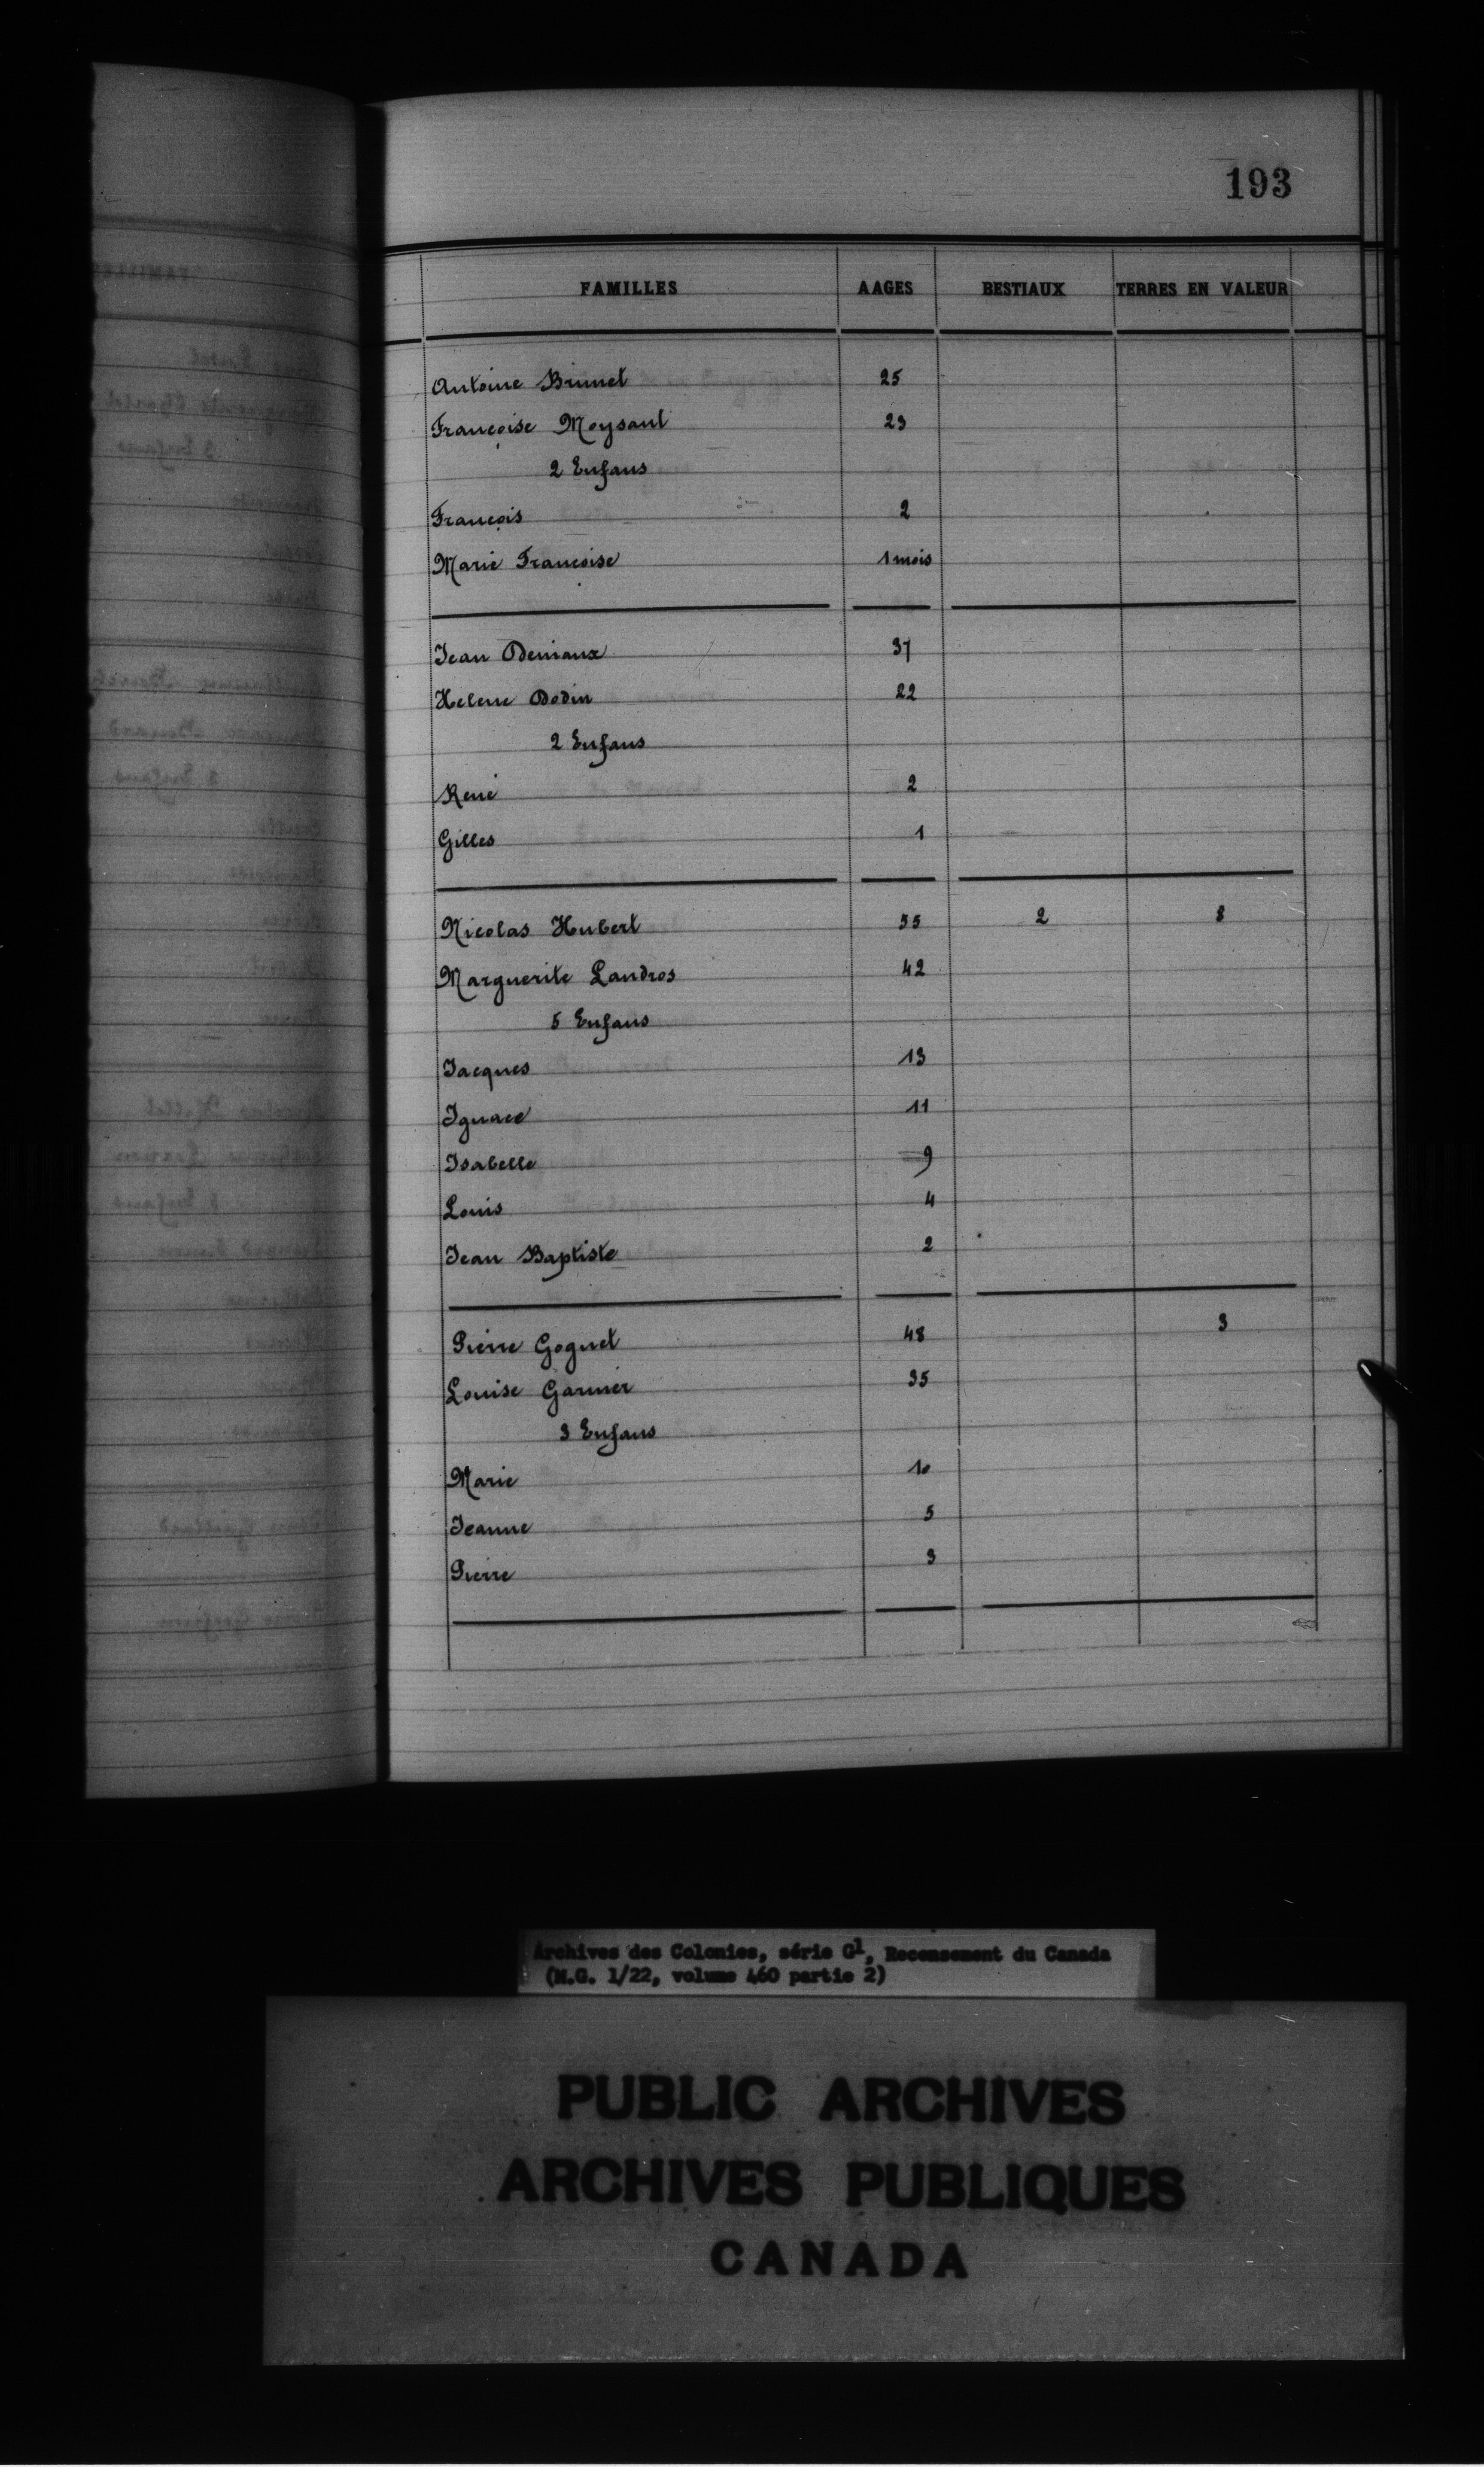 193
FAMILLES AAGES BESTIAUX TERRES EN VALEUR
Antoine Brunet 25
Françoise Moysant 23
2 Enfans
François 2
Marie Francoise 1 mois
Jean Deniaux 37
Helene Dodin 22
2 Enfans
René 2
Gilles 1
Nicolas Hubert 55 2 8
Marguerite Landros 42
5 Enfans
Jacques 13
Ignace 11
Isabelle 9
Louis 4
Jean Baptiste 2
Pierre Goguet 48 3
Louise Garnier 35
3 Enfans
Marie 10
Jeanne 5
Pierre 3
Archives des Colonies, série G1, Recensement du Canada
(M.G. 1/22, volume 460 partie 2)
PUBLIC ARCHIVES
ARCHIVES PUBLIQUES
CANADA